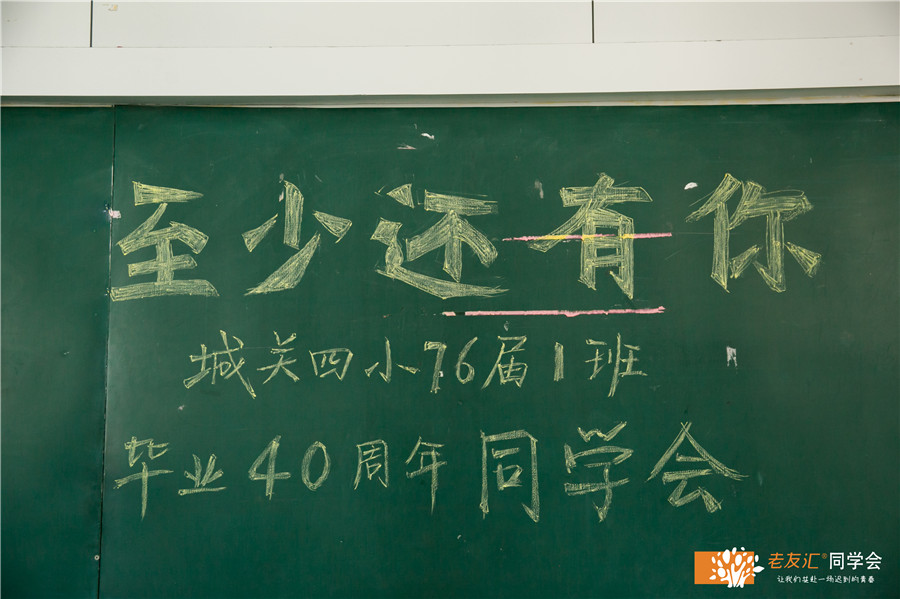 至少还有你
城关四小76届1班
毕业40周年同学会
老友汇®同学会
让我们赴赴一场迟到的青春